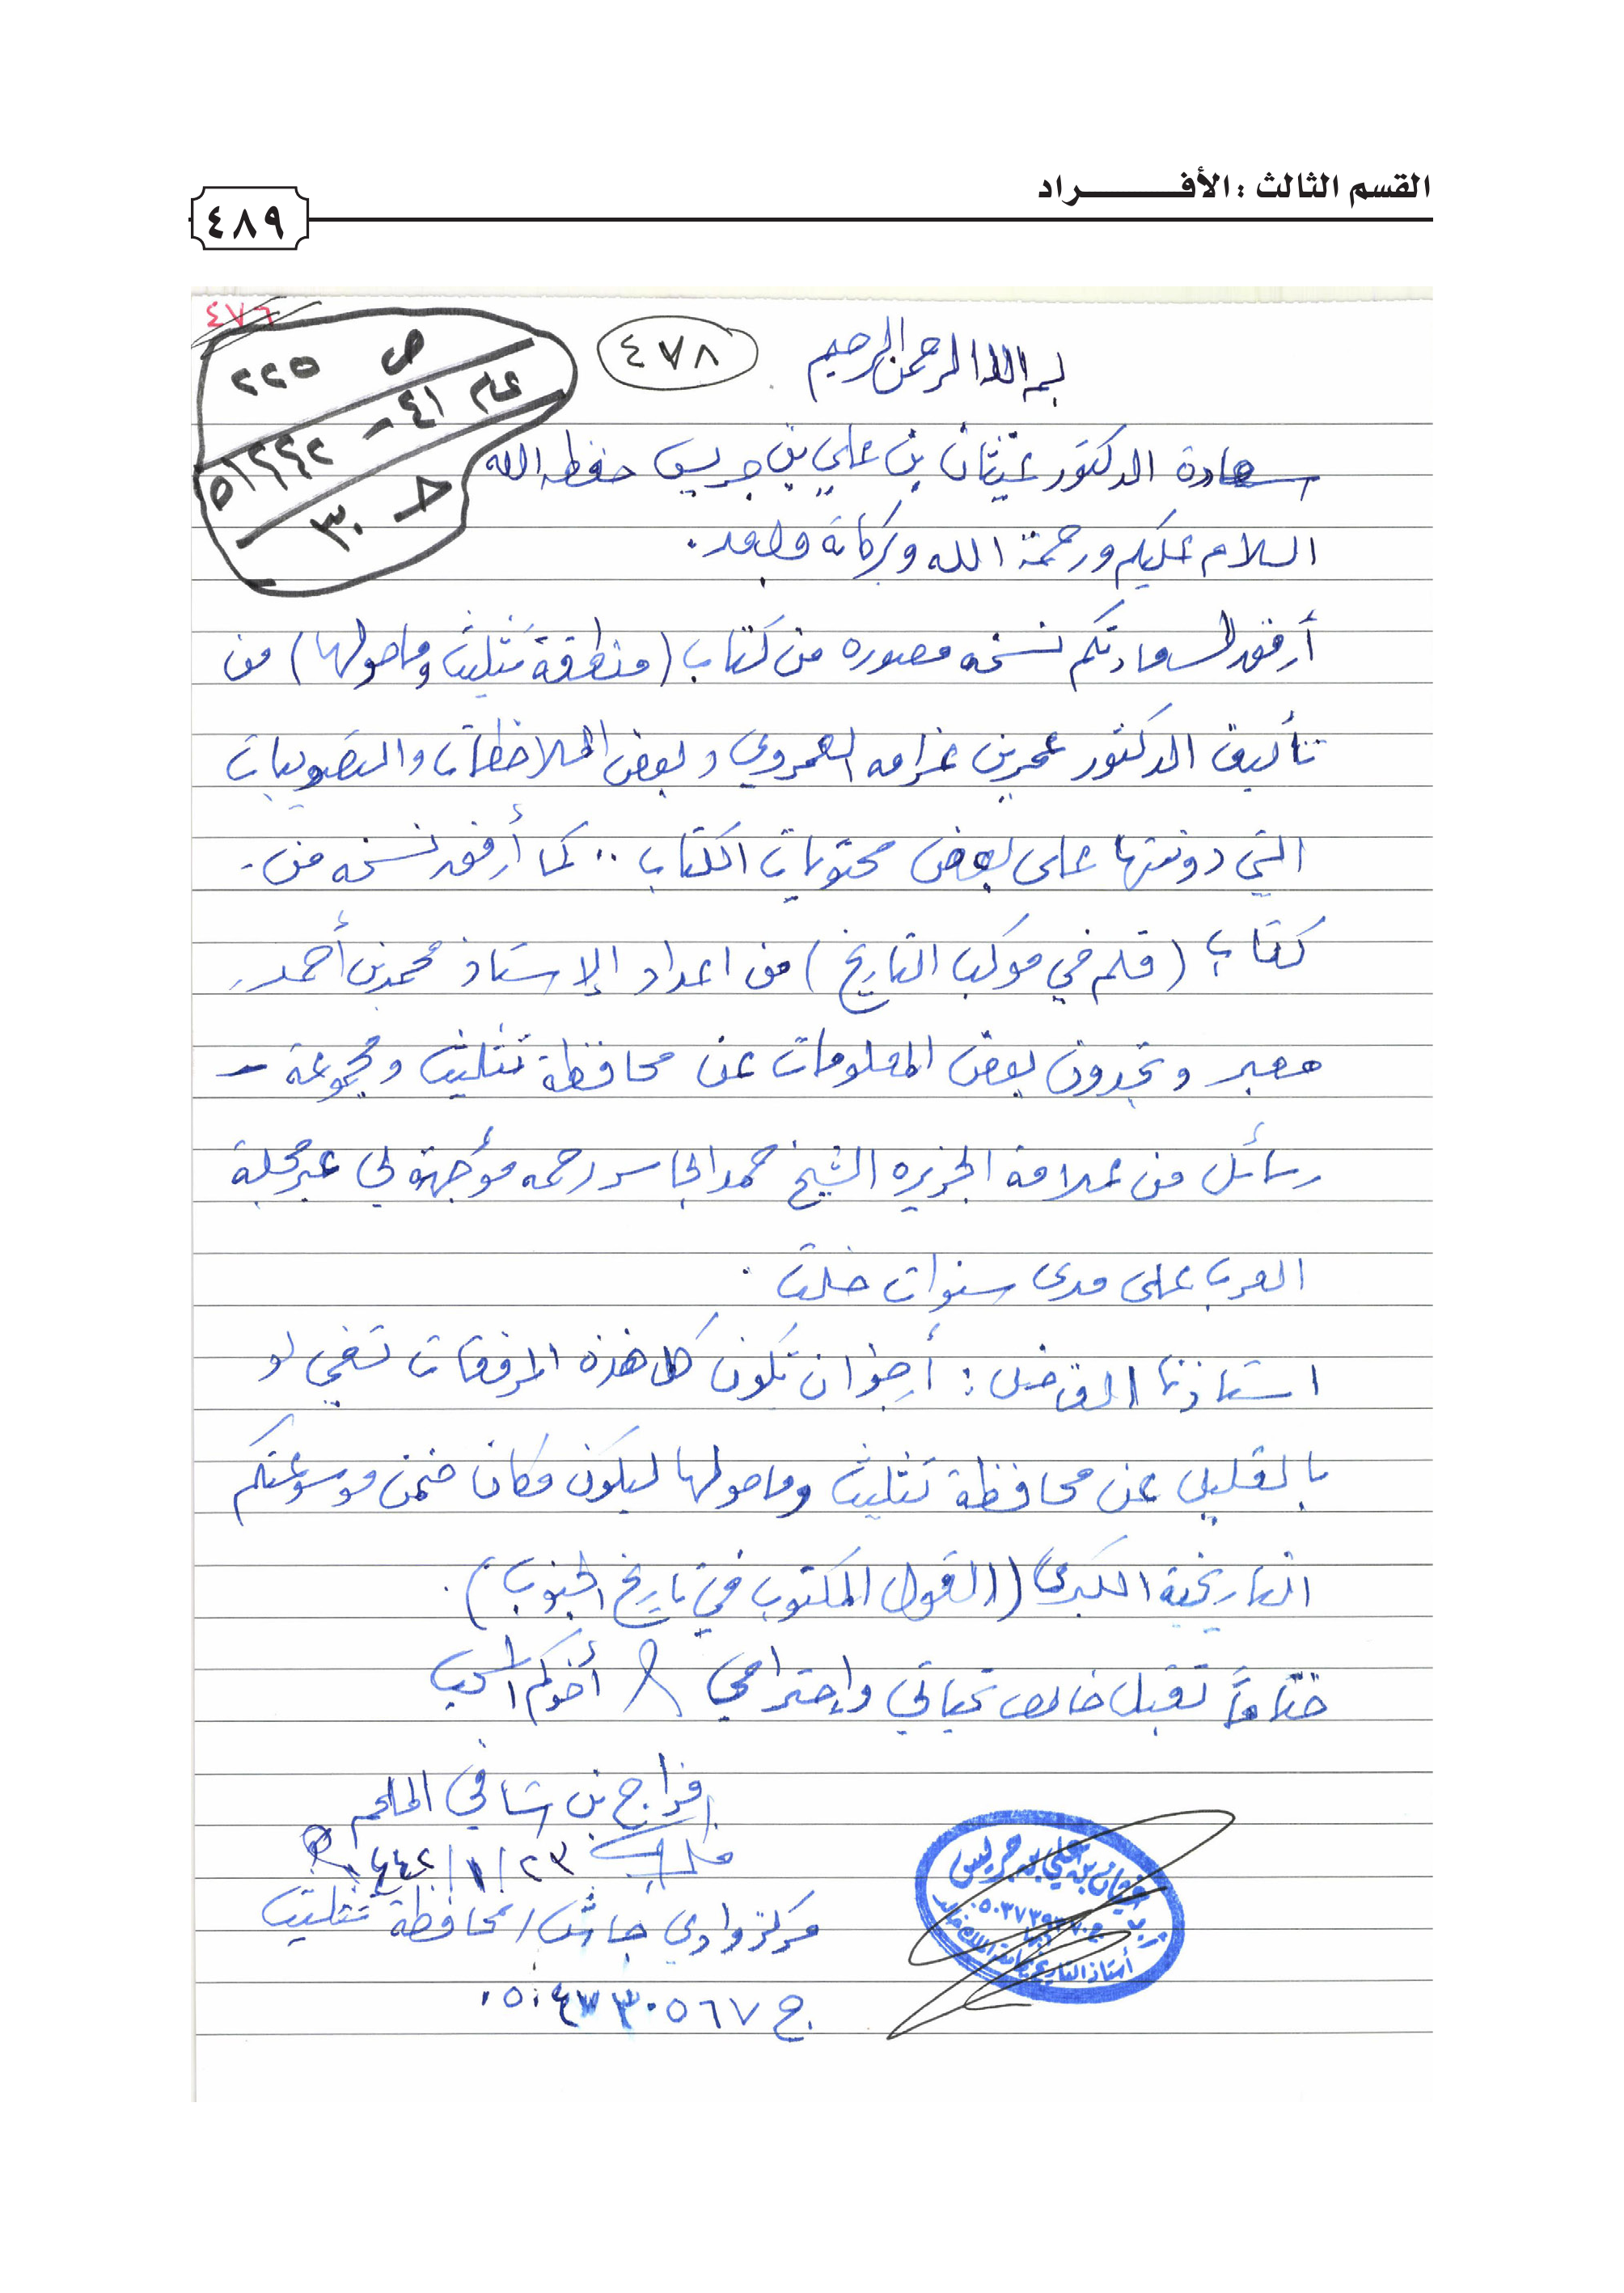 القسم الثالث : الأفــــــراد
٤٨٩
٤٧٦
٤٧٨
ص ٢٢٥
عام ٤١ -
١٤٤٢هـ
ح ٣٠
بسم الله الرحمن الرحيم
سعادة الدكتور غيثان بن علي بن جريس حفظه الله
السلام عليكم ورحمة الله وبركاته وبعد.
أرفق لسعادتكم نسخه مصوره من كتاب (منطقة تثليث وماحولها) من
تأليف الدكتور عمر بن غرامه العمروي وبعض الملاحظات والتصويبات
التي دونتها على بعض محتويات الكتاب .. كما أرفق نسخه من -
كتاب (قلم في موكب التاريخ) من اعداد الإستاذ محمد بن أحمد
معبر وتجدون بعض المعلومات عن محافظة تثليث ومجموعة -
رسائل من علامة الجزيره الشيخ حمد الجاسر رحمه مؤجهة لي عبر مجلة
العرب على مدى سنوات خلت .
استاذنا الفاضل : أرجوا ان تكون كل هذه المرفقات تفي لو
بالقليل عن محافظة تثليث وماحولها ليكون مكانا ضمن موسوعتكم
التاريخية الكبرى (القول المكتوب في تاريخ الجنوب) .
ختاماً تقبل خالص تحياتي وإحترامي أخوكم المحب
فراج بن شافي الملحم
٢٣ / ١ / ١٤٤٢هـ
مركز وادي جاش / محافظة تثليث
ج ٠٥٠٤٧٣٠٥٦٧
غيثان بن علي بن جريس
أستاذ التاريخ بجامعة الملك خالد